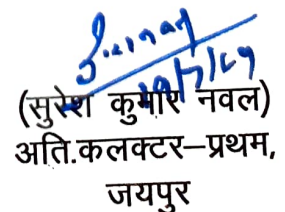 (सुरेश कुमार नवल)
अति.कलक्टर–प्रथम,
जयपुर